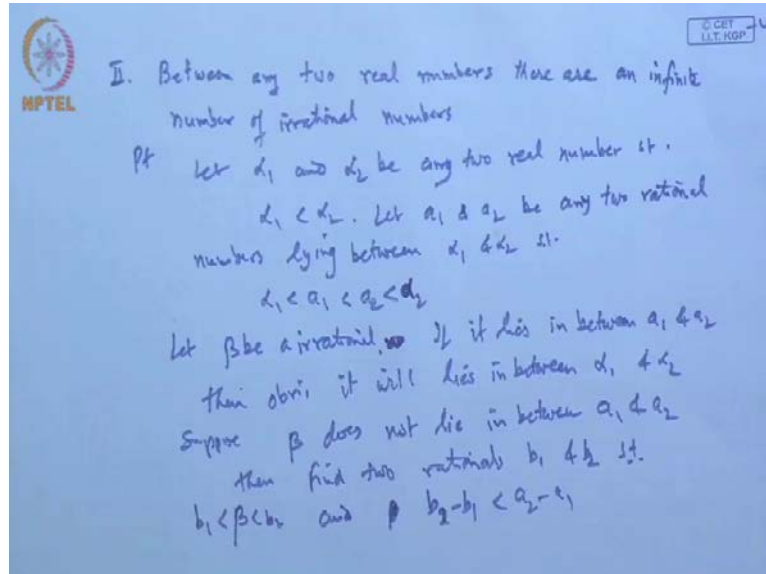 © CET
I.I.T. KGP
NPTEL
II. Between any two real numbers there are an infinite
number of irrational numbers
Pf Let α₁ and α₂ be any two real number st.
α₁ < α₂. Let a₁ & a₂ be any two rational
numbers lying between α₁ & α₂ st.
α₁ < a₁ < a₂ < α₂
Let β be a irrational, If it lies in between a₁ & a₂
then obvi. it will lies in between α₁ & α₂
Suppose β does not lie in between a₁ & a₂
then find two rationals b₁ & b₂ st.
b₁ < β < b₂ and b₂-b₁ < a₂-a₁